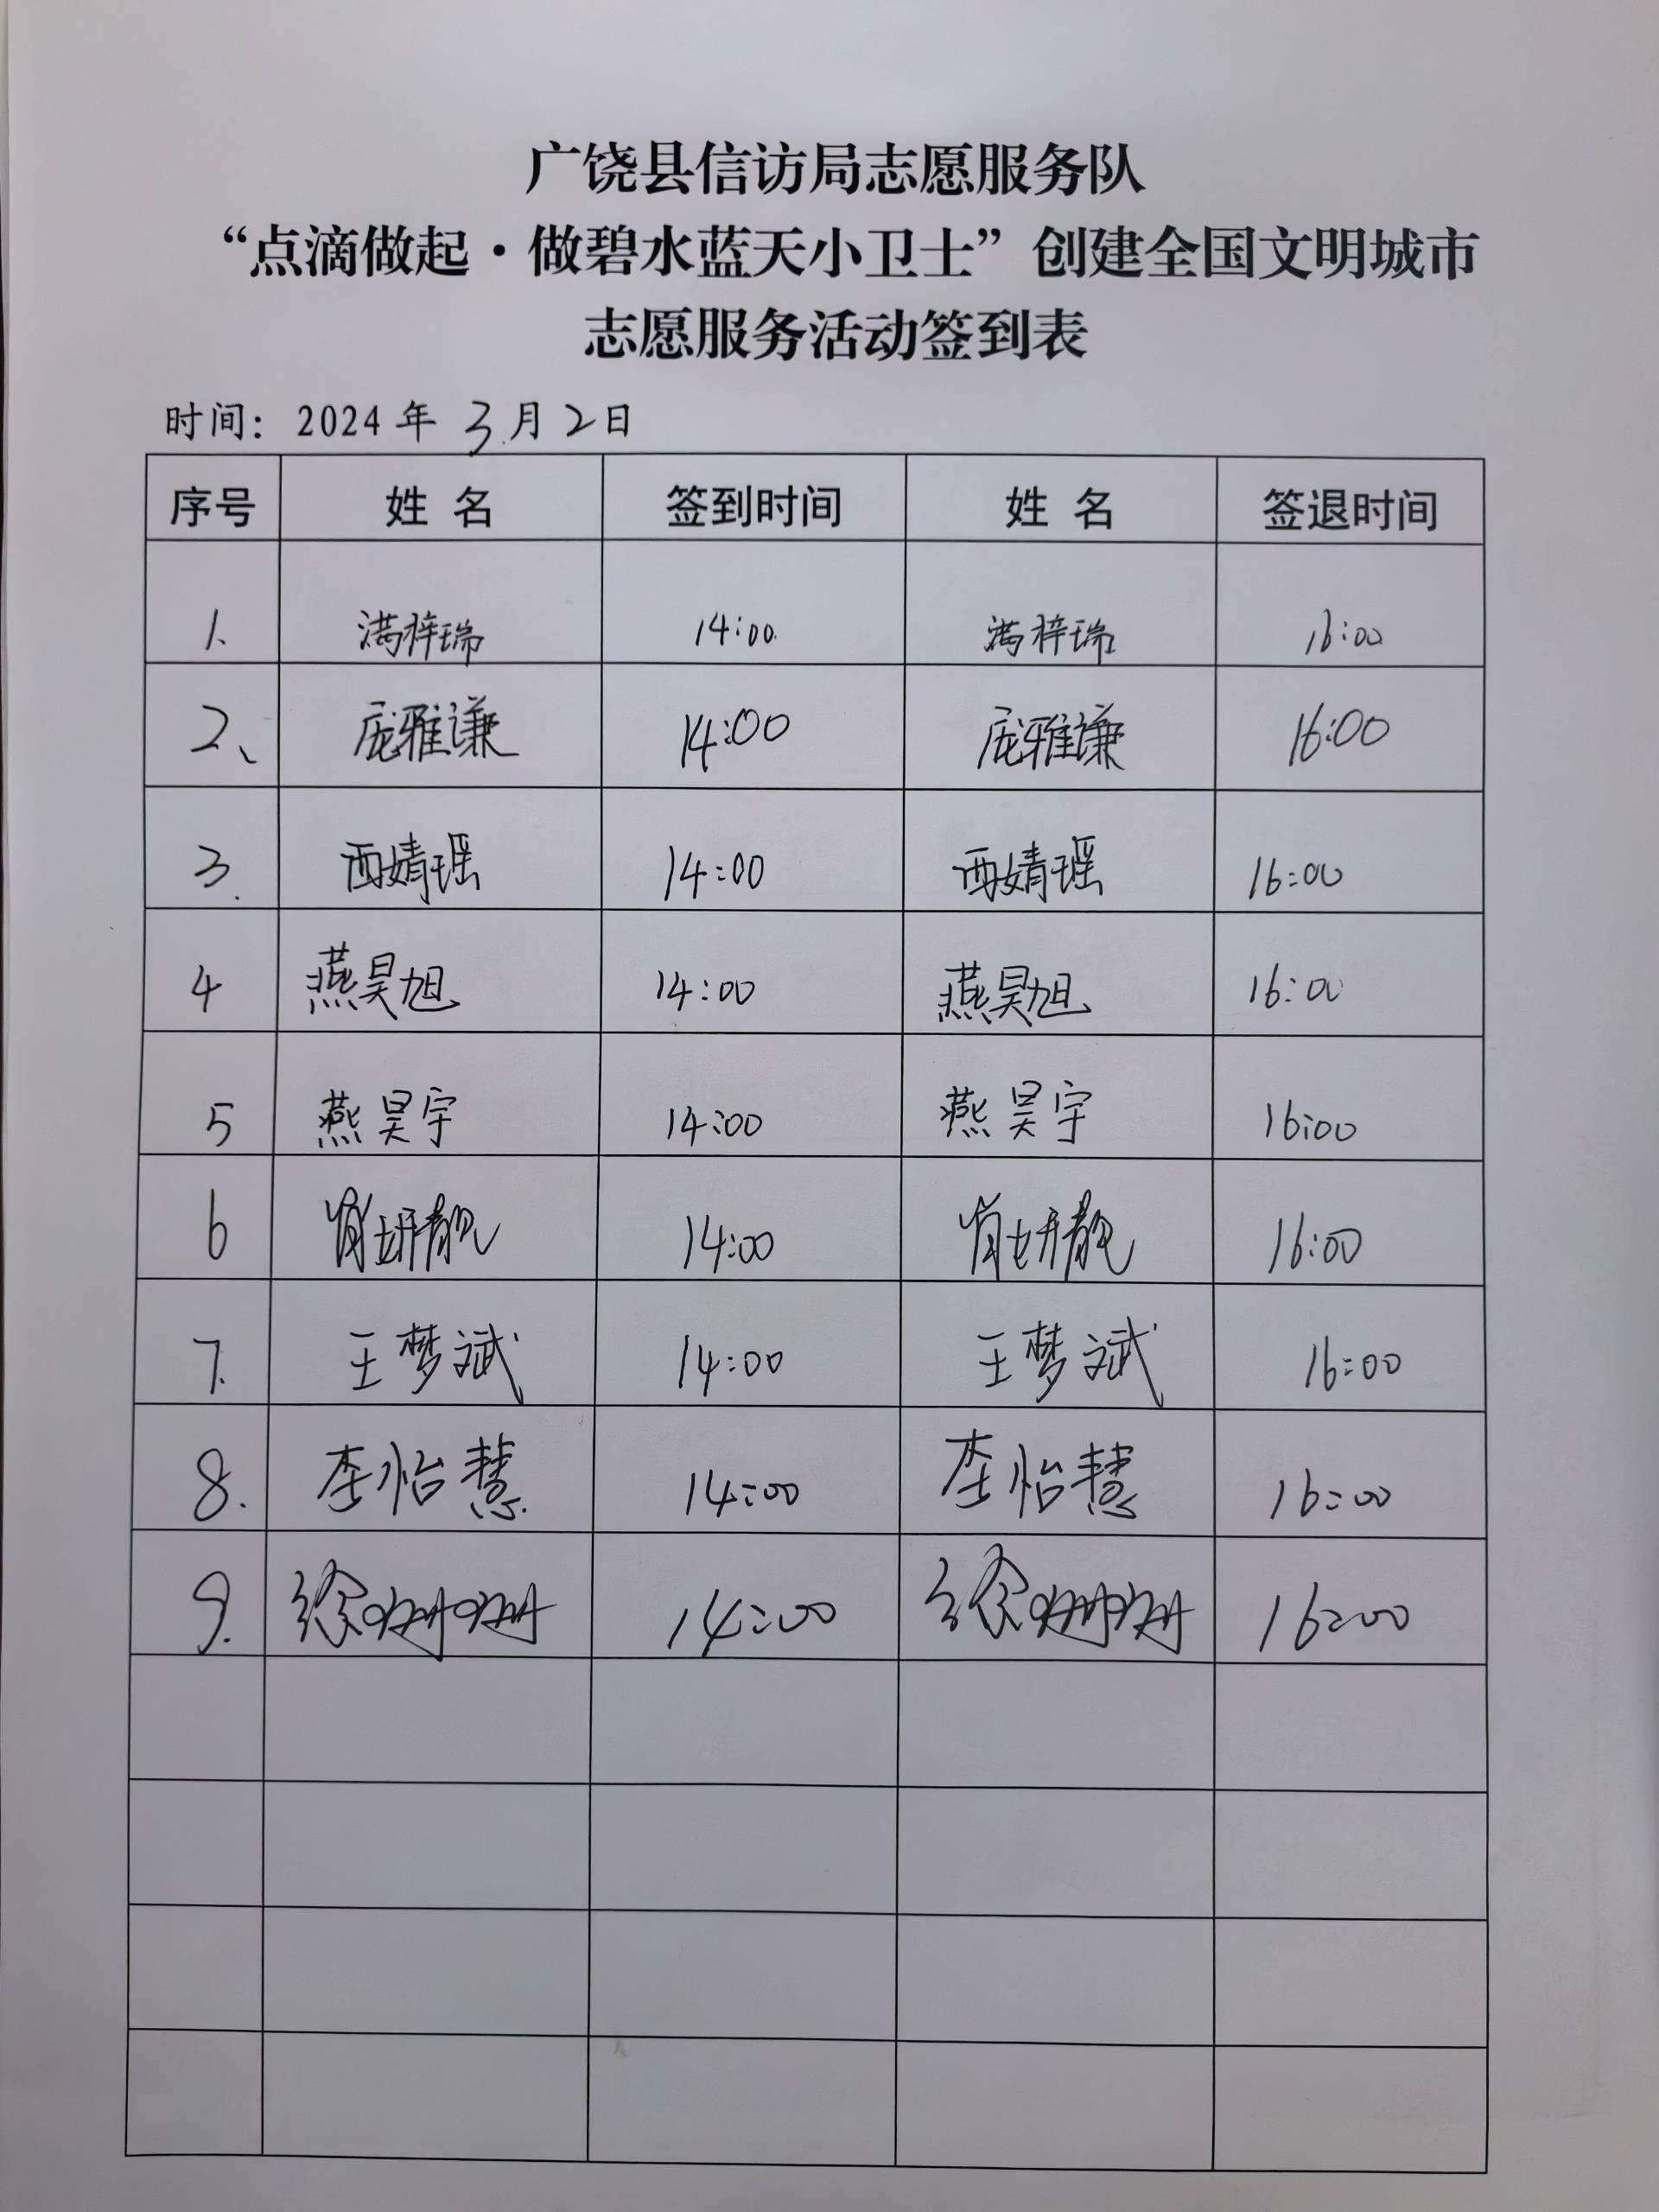 广饶县信访局志愿服务队
“点滴做起·做碧水蓝天小卫士”创建全国文明城市
志愿服务活动签到表
时间：2024年3月2日
序号 姓名 签到时间 姓名 签退时间
1、 满梓瑞 14:00 满梓瑞 16:00
2、 庞雅谦 14:00 庞雅谦 16:00
3. 西婧瑶 14:00 西婧瑶 16:00
4 燕昊旭 14:00 燕昊旭 16:00
5 燕昊宇 14:00 燕昊宇 16:00
6 肖妍靓 14:00 肖妍靓 16:00
7. 王梦斌 14:00 王梦斌 16:00
8. 李怡慧 14:00 李怡慧 16:00
9. 徐姗姗 14:00 徐姗姗 16:00